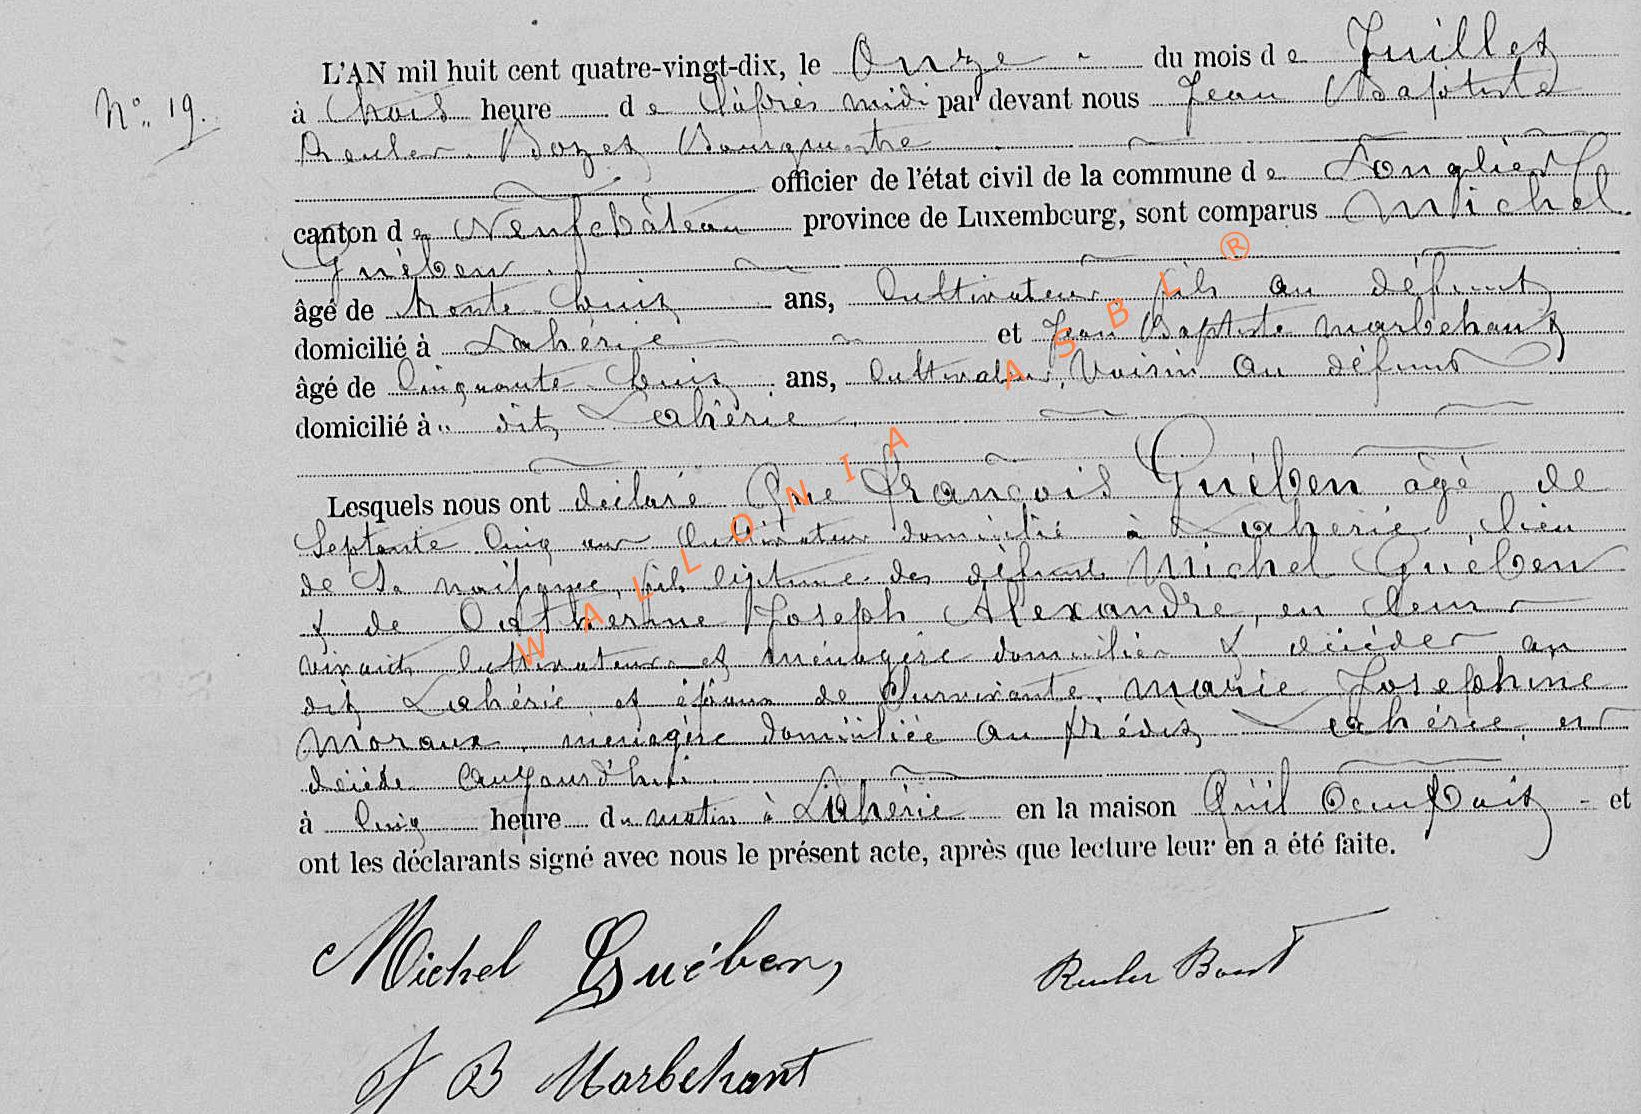 L'AN mil huit cent quatre-vingt-dix, le Onze du mois de Juillet
N° 19. à trois heure de l'après midi par devant nous Jean Baptiste
Reuler Bozet Bourgmestre
officier de l'état civil de la commune de Longlier
canton de Neufchâteau province de Luxembourg, sont comparus Michel
Guében
âgé de trente huit ans, Cultivateur fils au défunt
domicilié à Lahérie et Jean Baptiste Marbehant
âgé de Cinquante huit ans, Cultivateur, Voisin au défunt
domicilié à dit Lahérie
Lesquels nous ont déclaré Que François Guében âgé de
Septante Cinq ans Cultivateur domicilié à Lahérie, lieu
de Sa naissance, fils légitime des défunts Michel Guében
& de Catherine Joseph Alexandre, en leur
vivant cultivateur et ménagère domiciliés & décédés au
dit Lahérie et époux de Survivante Marie Josephine
Moraux, ménagère domiciliée au prédit Lahérie, est
décédé aujourd'hui
à Cinq heure du matin à Lahérie en la maison Qu'il Occupait - et
ont les déclarants signé avec nous le présent acte, après que lecture leur en a été faite.
Michel Guében, Reuler Bozet
J B Marbehant
WALLONIA ASBL ®